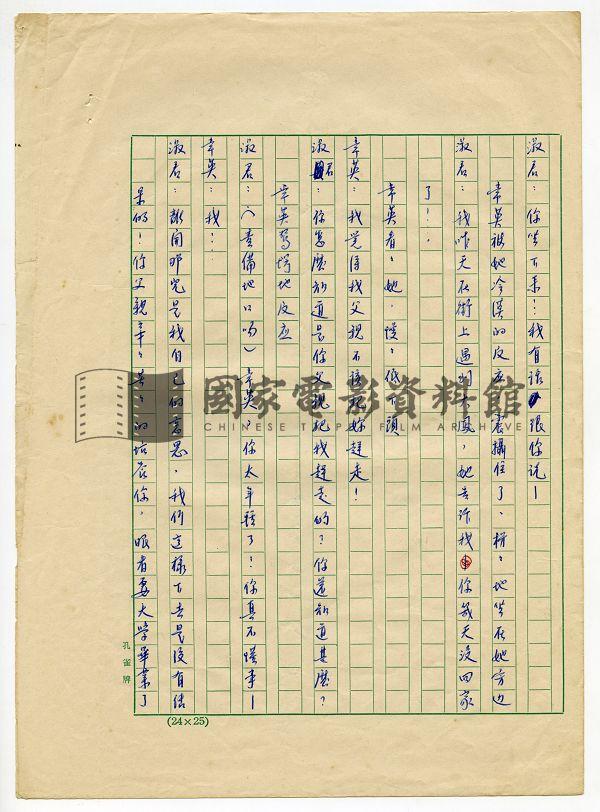 淑君：你坐下来！我有話跟你说—
幸英被她冷漠的反应震攝住了，楞楞地坐在她旁边
淑君：我昨天在街上遇到鳳，她告诉我你幾天没回家
了！．
幸英看看她，慢慢低下頭
幸英：我觉得我父親不該把妳趕走！
淑君：你怎麼知道是你父親把我趕走的？你還知道甚麼？
幸英驚愕地反应
淑君：（責備地口吻）幸英？你太年輕了！你真不懂事—
幸英：我：：
淑君：離開那兒是我自己的意思，我們這樣下去是没有结
果的！你父親辛辛苦苦的培养你，眼看要大学畢業了
孔雀牌
(24×25)
國家電影資料館
CHINESE TAIPEI FILM ARCHIVE